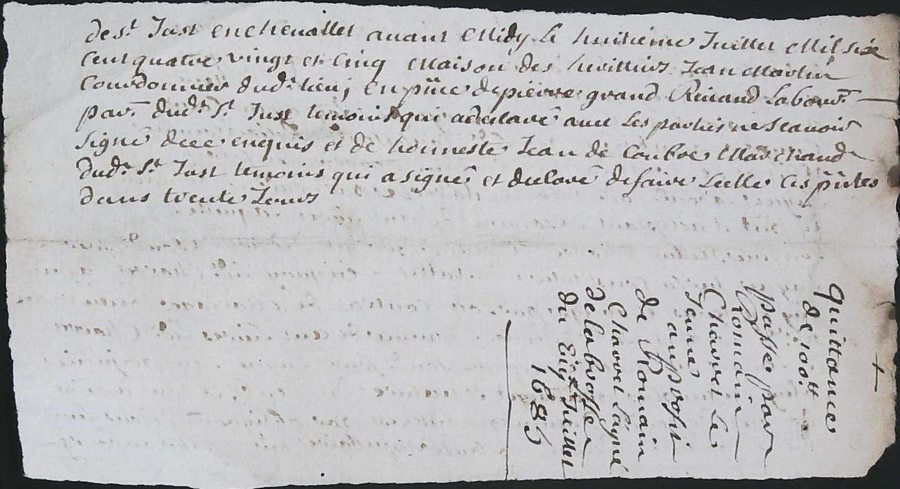 de st Just en chevallet avant Midy le huitième Juillet Mil six
cent quatre vingt et cinq Maison des héritiers Jean Martin
Courdonnier dudt lieu, en pñce de pierre grand Renaud labour
par. dudt st Just temoins qui a declaré avec les parties ne scavoir
signé de ce enquis et de honneste Jean de Coubre Marchand
dudt st Just temoins qui a signé et declaré de faire seller les pñtes
dans trente Jours
quittance
de 100tt
passée par
Romain
Charret le
Jeune
au profit
de Romain
Charret layné
de labrosse
du Juillet
1685